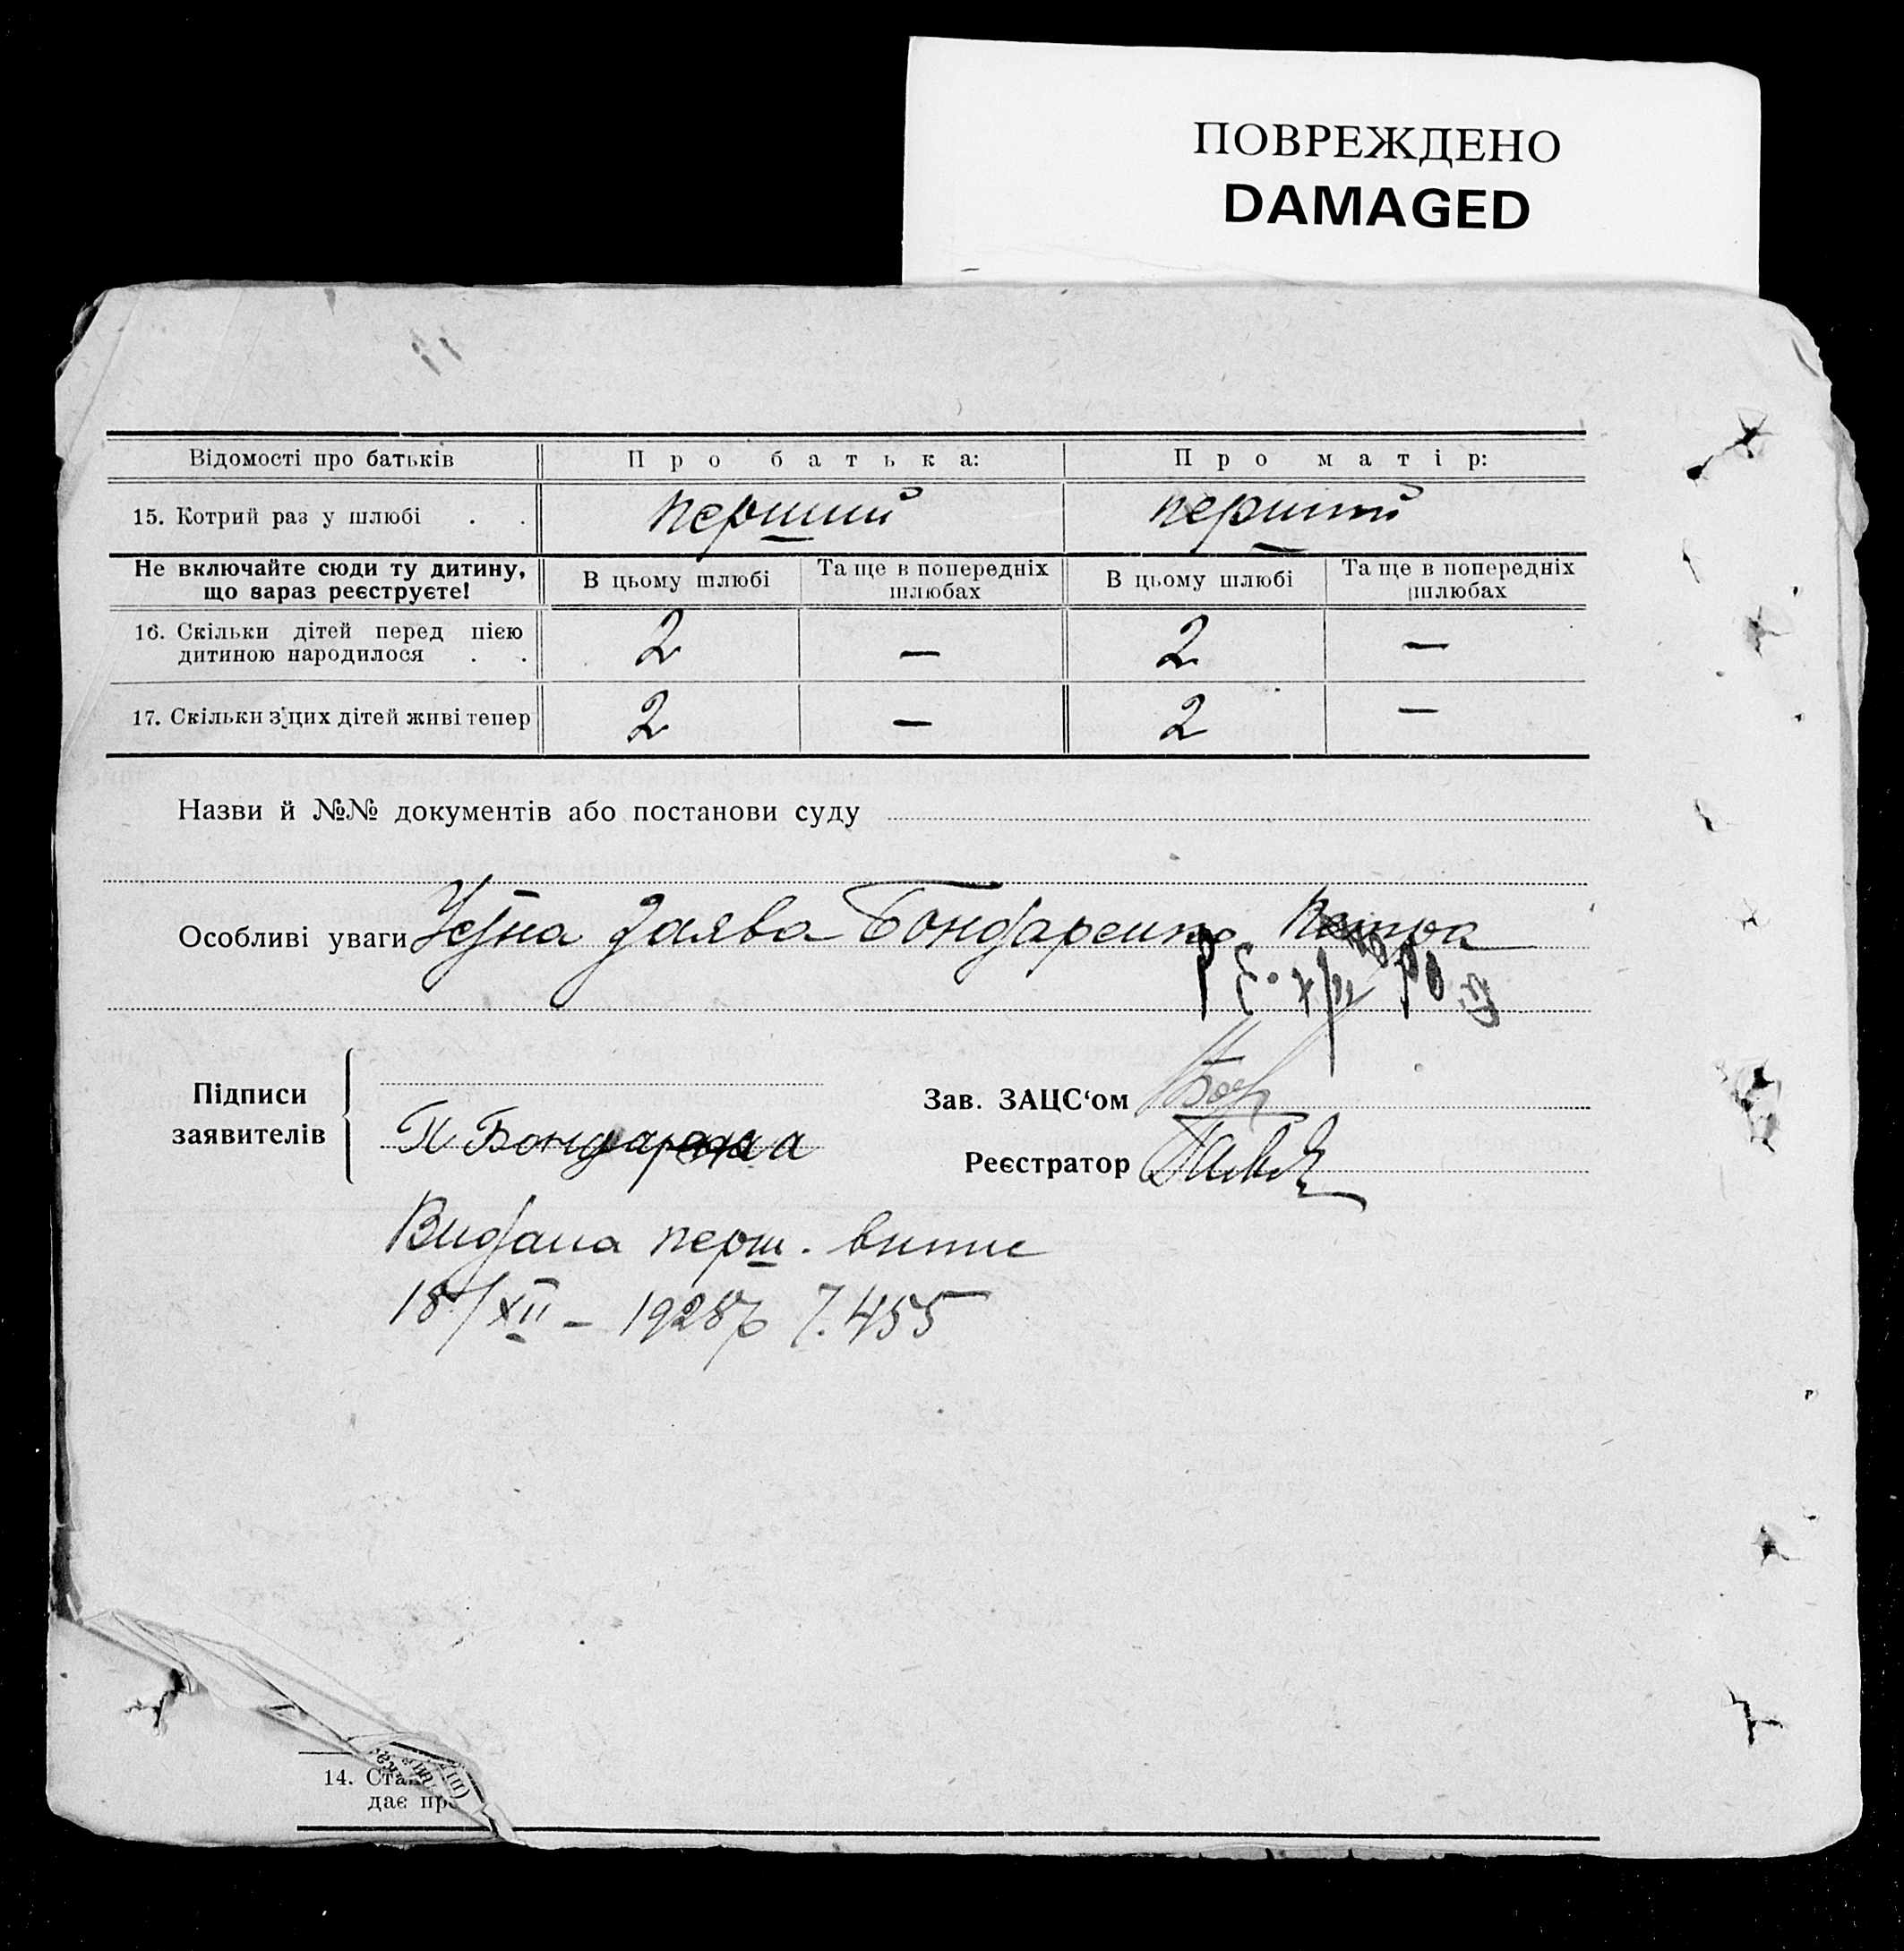 ПОВРЕЖДЕНО
DAMAGED
Відомості про батьків Про батька: Про матір:
15. Котрий раз у шлюбі . . перший перший
Не включайте сюди ту дитину, що зараз реєструєте! В цьому шлюбі Та ще в попередніх шлюбах В цьому шлюбі Та ще в попередніх шлюбах
16. Скільки дітей перед цією дитиною народилося . . 2 — 2 —
17. Скільки з цих дітей живі тепер 2 — 2 —
Назви й №№ документів або постанови суду
Особливі уваги Устна заява Бондаренко Петра
Підписи заявителів
Зав. ЗАЦС‘ом
П Бондар
Реєстратор
Видана перш. випис
18/XII – 1928 455
14. Ста
дає пр